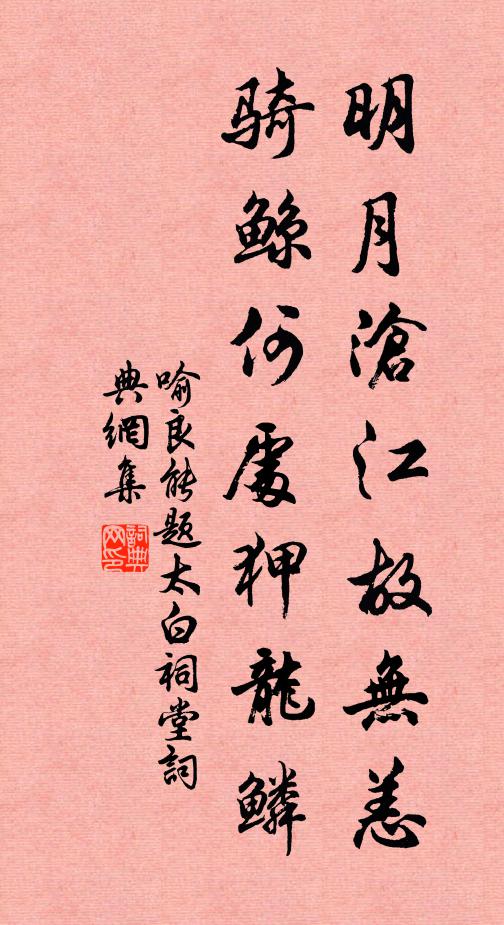 明月滄江故無恙
骑鲸何處狎龍鱗
喻良能题太白祠堂詞
典網集
詞典
网印